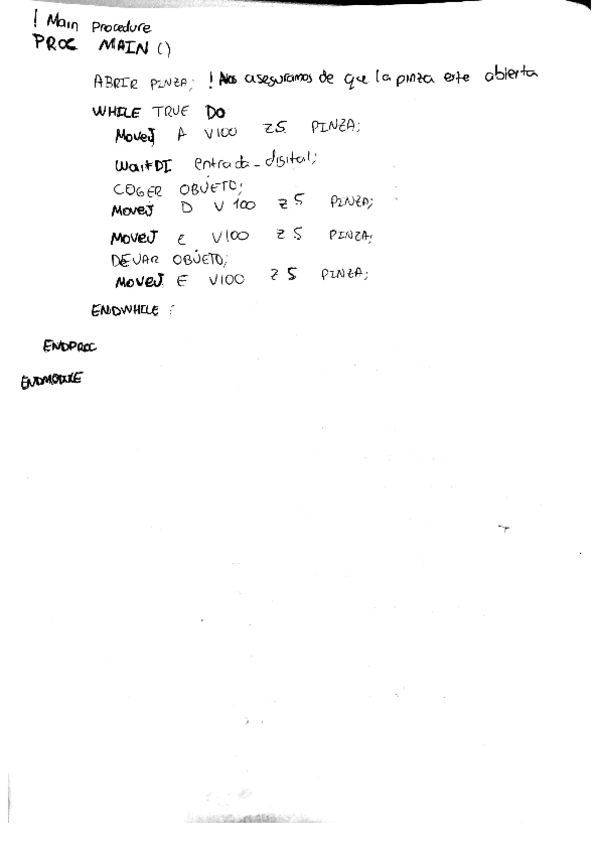 ! Main Procedure
PROC MAIN ()
ABRIR PINZA; ! Nos aseguramos de que la pinza este abierta
WHILE TRUE DO
MoveJ A V100 Z5 PINZA;
WaitDI entrada_digital;
COGER OBJETO;
MoveJ D V100 Z5 PINZA;
MoveJ C V100 Z5 PINZA;
DEJAR OBJETO;
MoveJ E V100 Z5 PINZA;
ENDWHILE;
ENDPROC
ENDMODULE